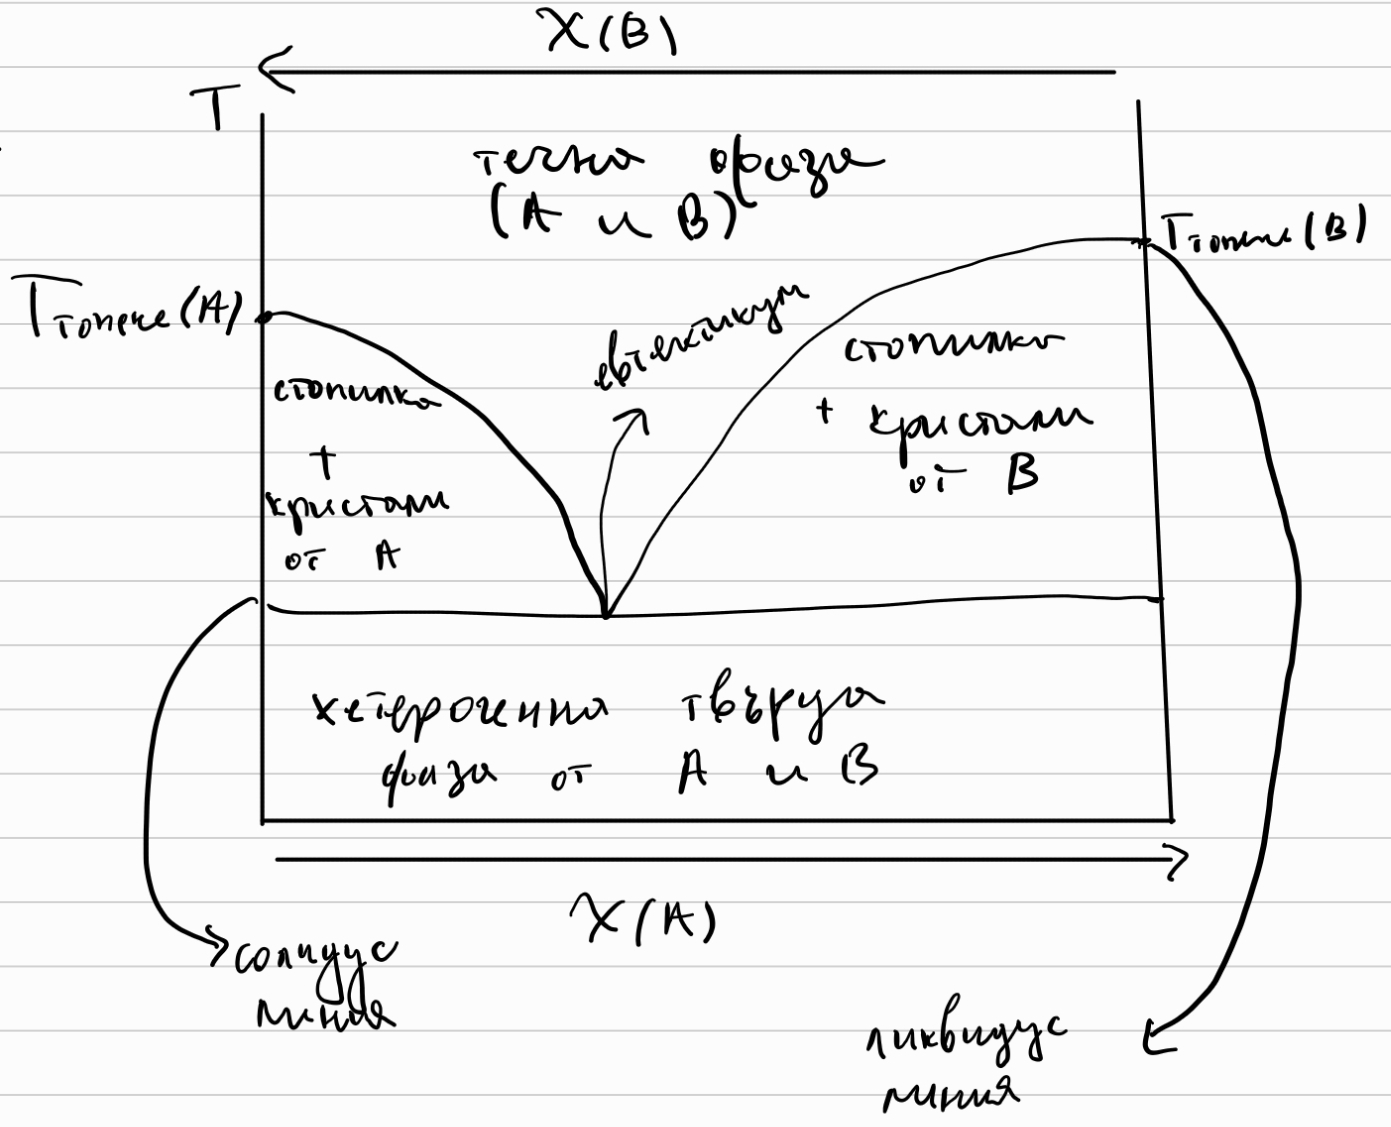 X(B)
T
течна фаза
(A и B)
Tтопене(B)
Tтопене(A)
евтектикум
стопилка
+
кристали
от A
стопилка
+ кристали
от B
хетерогенна твърда
фаза от A и B
X(A)
солидус
линия
ликвидус
линия